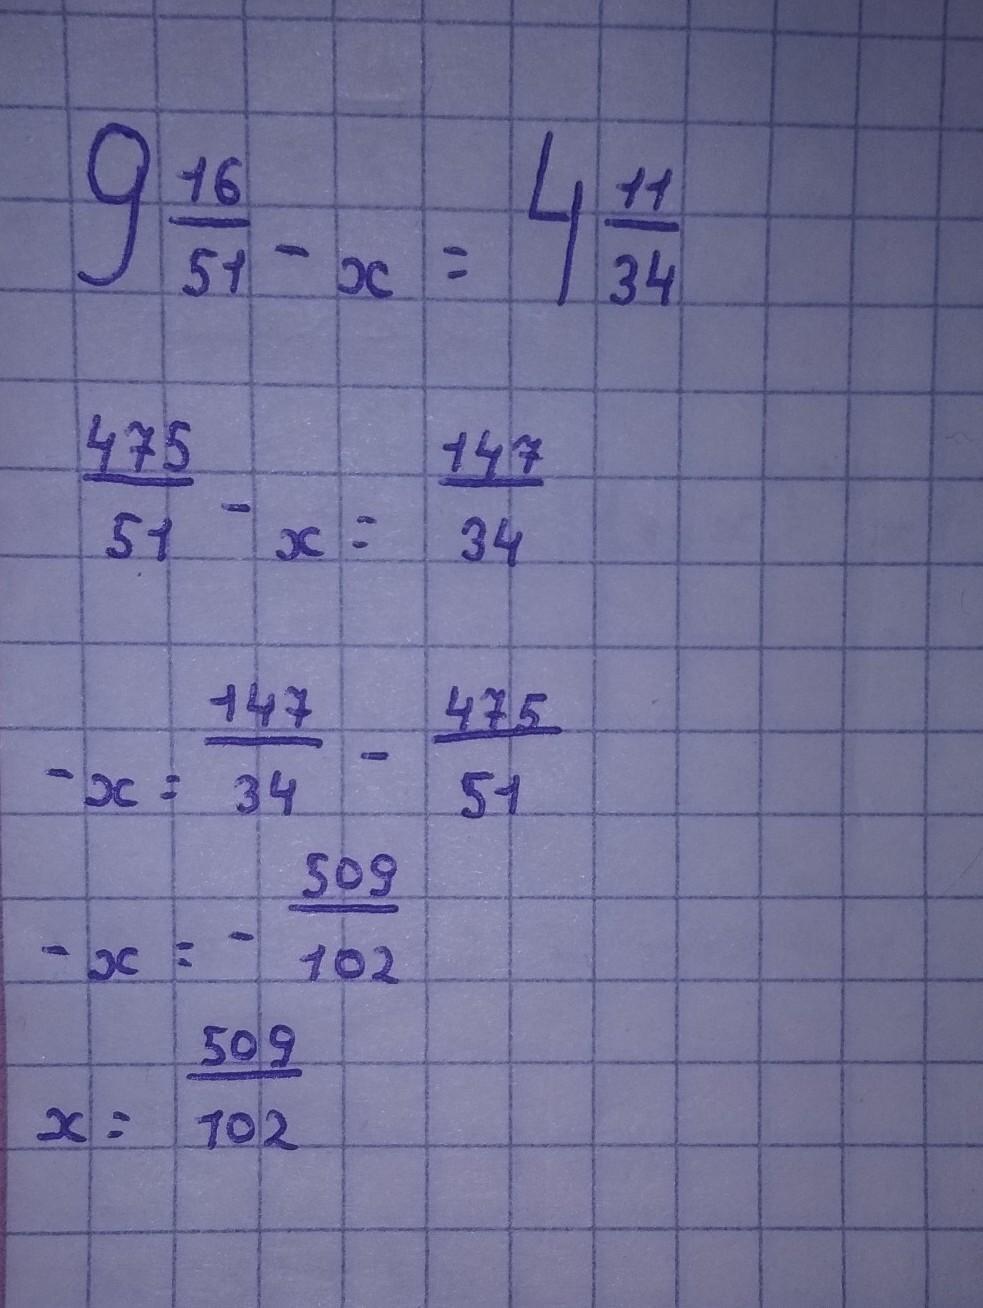 9 16/51 - x = 4 11/34
475/51 - x = 147/34
-x = 147/34 - 475/51
-x = - 509/102
x = 509/102